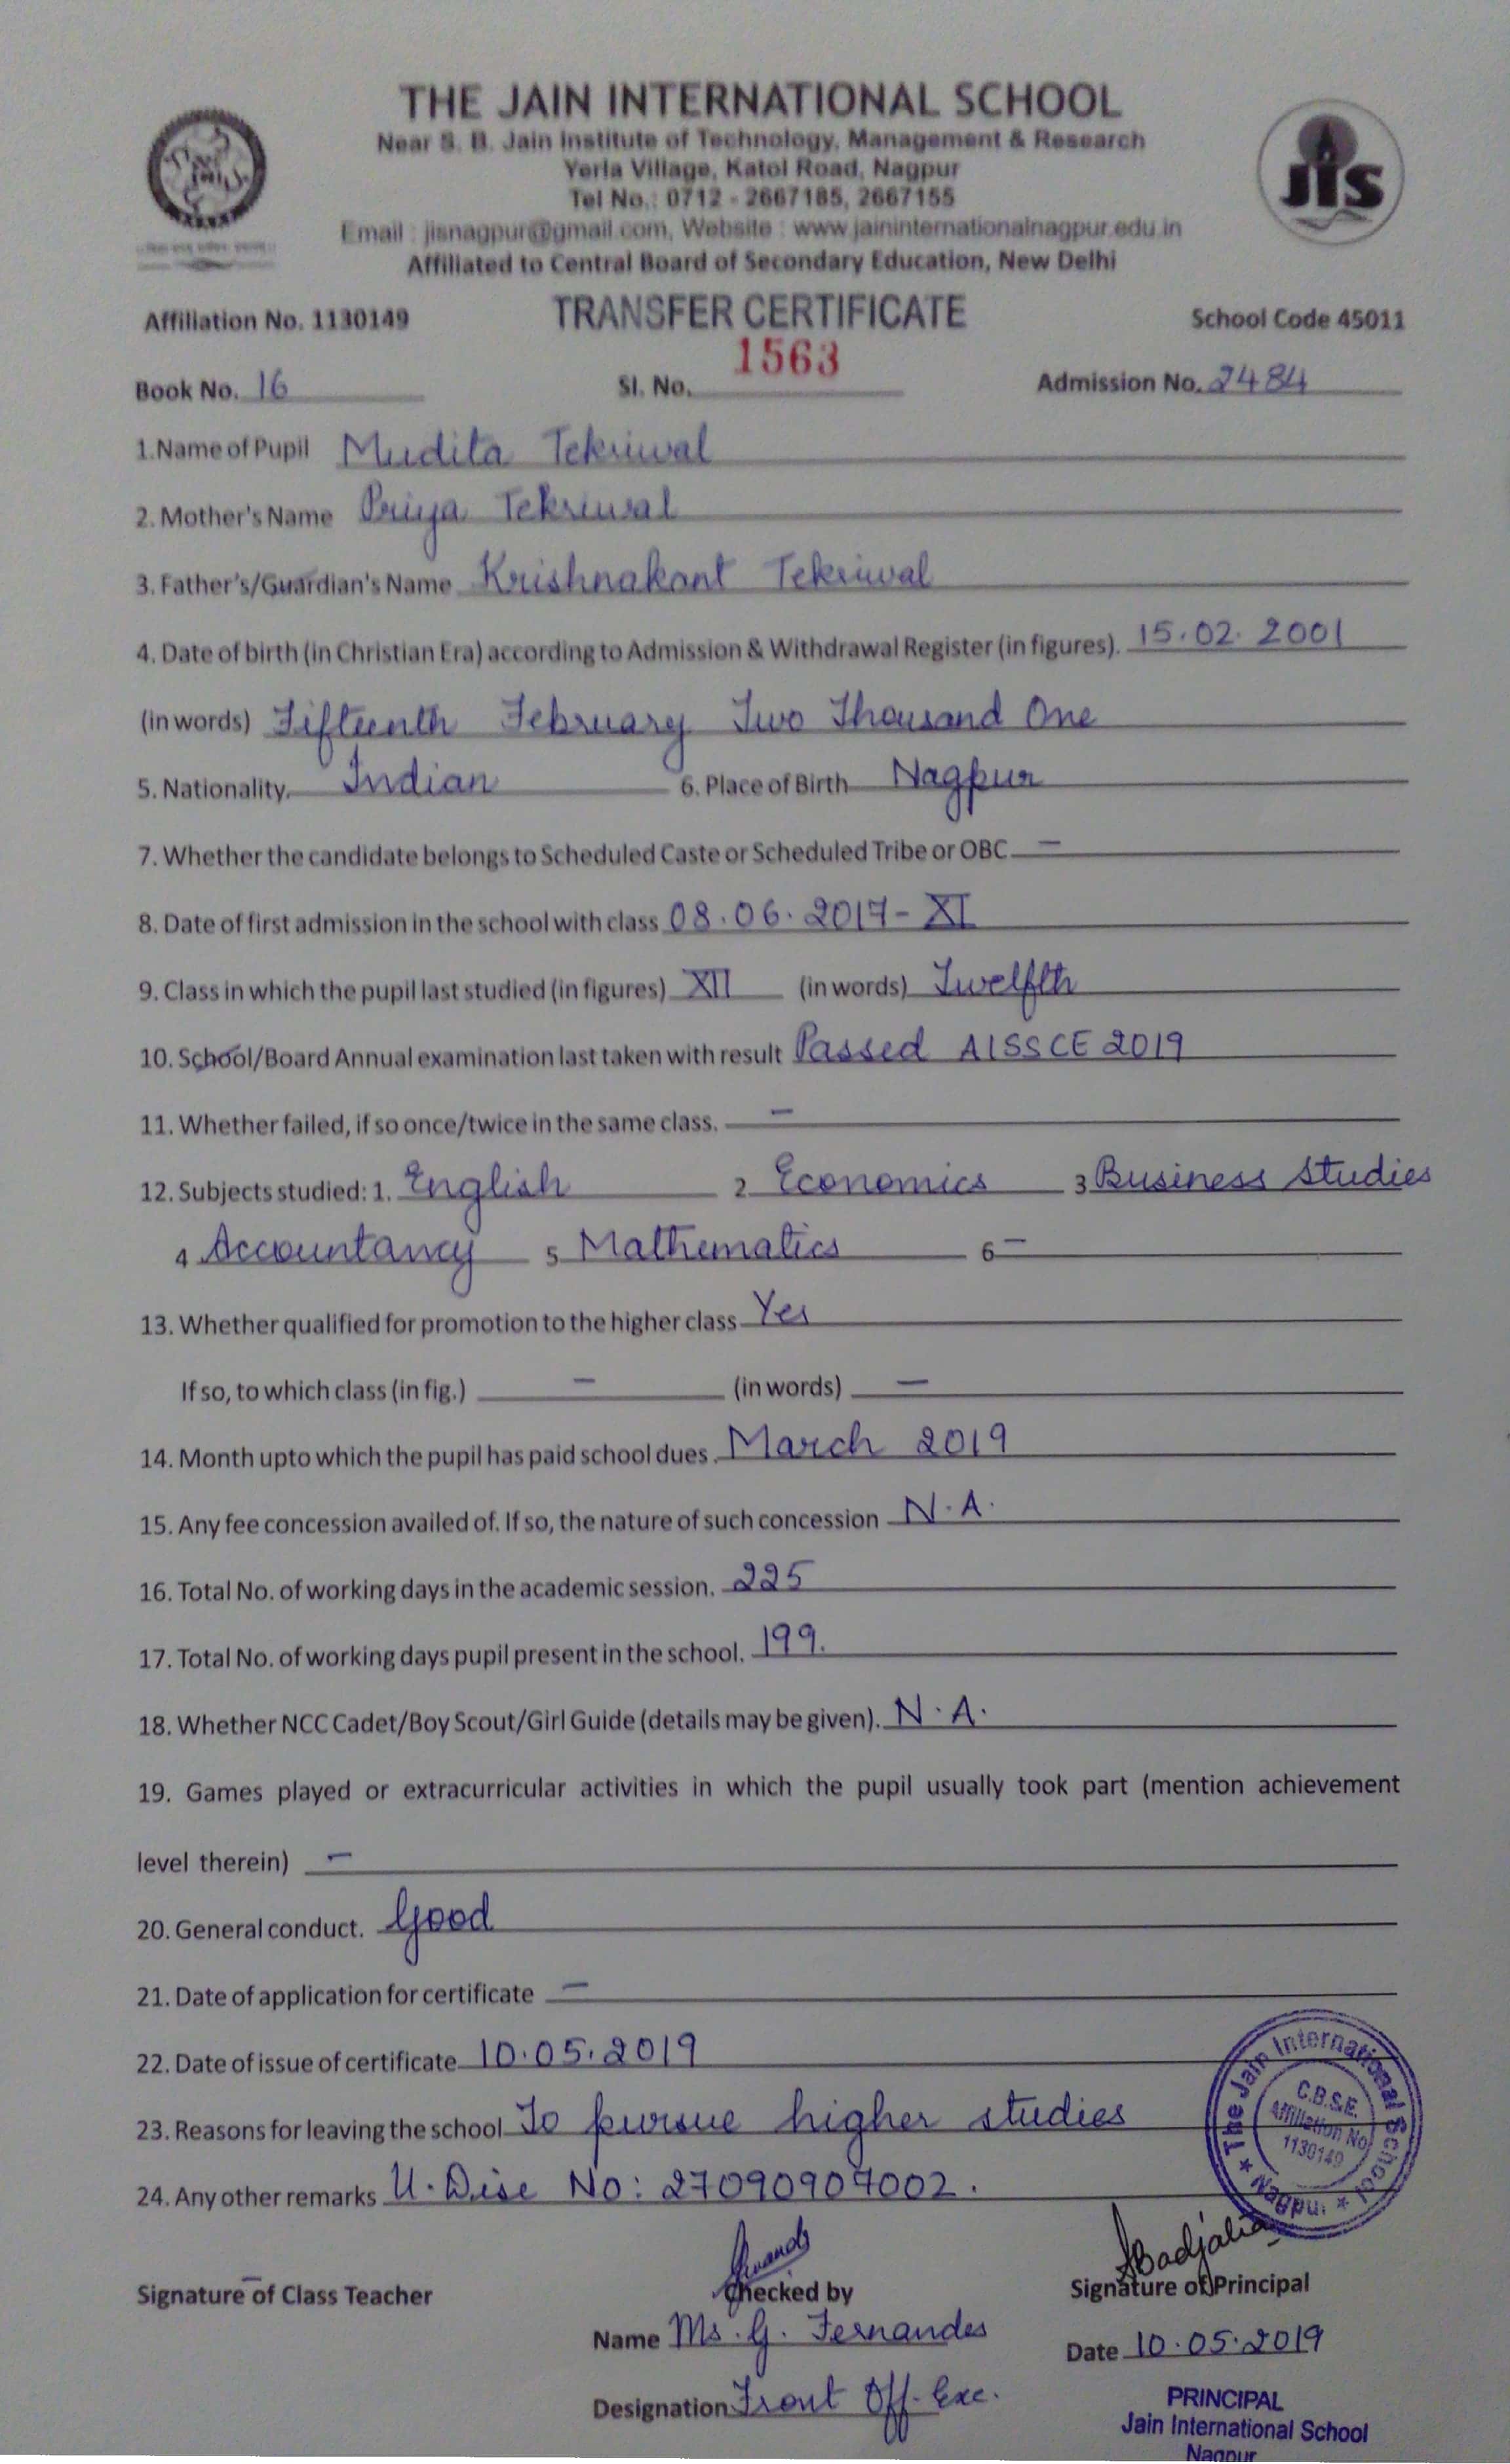 THE JAIN INTERNATIONAL SCHOOL
Near S. B. Jain Institute of Technology, Management & Research
Yerla Village, Katol Road, Nagpur
Tel No.: 0712 - 2667185, 2667155
Email : jisnagpur@gmail.com, Website : www.jaininternationalnagpur.edu.in
Affiliated to Central Board of Secondary Education, New Delhi
JIS
Affiliation No. 1130149 TRANSFER CERTIFICATE School Code 45011
Book No. 16 Sl. No. 1563 Admission No. 2484
1.Name of Pupil Mudita Tekriwal
2. Mother's Name Priya Tekriwal
3. Father's/Guardian's Name Krishnakant Tekriwal
4. Date of birth (in Christian Era) according to Admission & Withdrawal Register (in figures). 15.02.2001
(in words) Fifteenth February Two Thousand One
5. Nationality. Indian 6. Place of Birth Nagpur
7. Whether the candidate belongs to Scheduled Caste or Scheduled Tribe or OBC –
8. Date of first admission in the school with class 08.06.2017 - XI
9. Class in which the pupil last studied (in figures) XII (in words) Twelfth
10. School/Board Annual examination last taken with result Passed AISSCE 2019
11. Whether failed, if so once/twice in the same class. –
12. Subjects studied: 1. English 2. Economics 3 Business Studies
4 Accountancy 5 Mathematics 6 –
13. Whether qualified for promotion to the higher class Yes
If so, to which class (in fig.) – (in words) –
14. Month upto which the pupil has paid school dues. March 2019
15. Any fee concession availed of. If so, the nature of such concession N.A.
16. Total No. of working days in the academic session. 225
17. Total No. of working days pupil present in the school. 199.
18. Whether NCC Cadet/Boy Scout/Girl Guide (details may be given). N.A.
19. Games played or extracurricular activities in which the pupil usually took part (mention achievement
level therein) –
20. General conduct. Good
21. Date of application for certificate –
22. Date of issue of certificate 10.05.2019
23. Reasons for leaving the school To pursue higher studies
24. Any other remarks U.Dise No: 27090907002.
The Jain International School ★ Nagpur ★
C.B.S.E.
Affiliation No
1130149
Signature of Class Teacher – Checked by Signature of Principal
Name Ms. G. Fernandes Date 10.05.2019
Designation Front Off. Exc.
PRINCIPAL
Jain International School
Nagpur